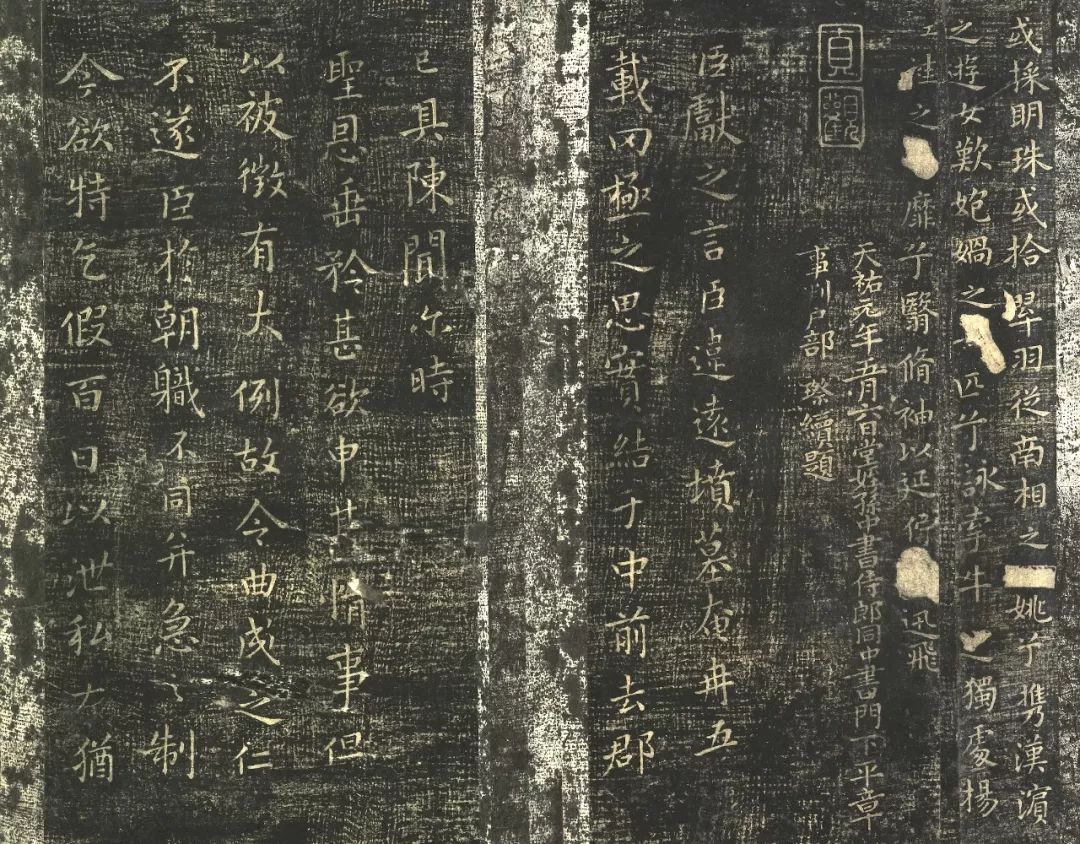 或採明珠或拾翠羽從南相之姚兮攜漢濱
之遊女歎匏媧之匹兮詠牽牛之獨處揚
袿之靡兮翳脩袖以延佇迅飛
貞觀
天祐元年五月六日堂姪孫中書侍郎同中書門下平章
事判戶部璨續題
臣獻之言臣違遠墳墓奄冉五
載罔極之思實結于中前去郡
已具陳聞尓時
聖恩垂矜甚欲申其情事但
以被徵有大例故令曲成之仁
不遂臣於朝職不同并急制
今欲特乞假百日以泄私大猶